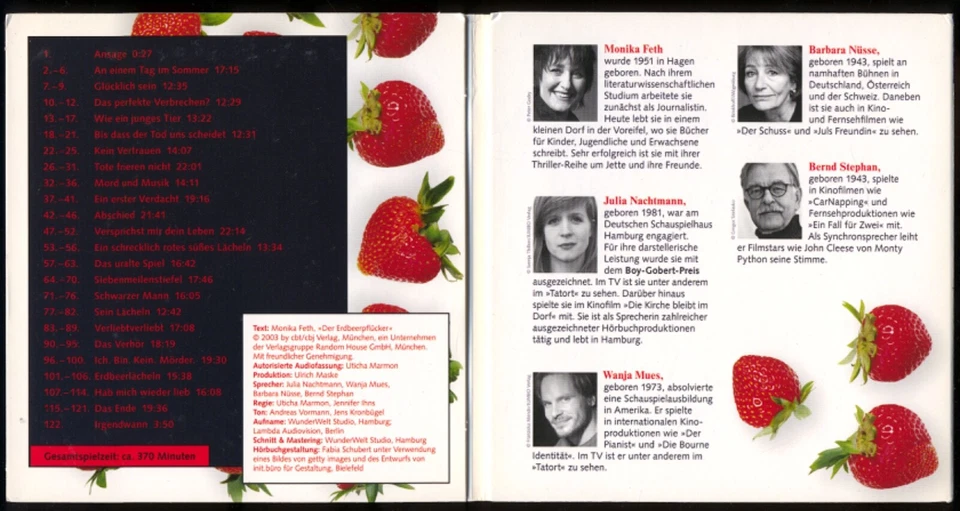 1. Ansage 0:27
2.–6. An einem Tag im Sommer 17:15
7.–9. Glücklich sein 12:35
10.–12. Das perfekte Verbrechen? 12:29
13.–17. Wie ein junges Tier 13:22
18.–21. Bis dass der Tod uns scheidet 12:31
22.–25. Kein Vertrauen 14:07
26.–31. Tote frieren nicht 22:01
32.–36. Mord und Musik 14:11
37.–41. Ein erster Verdacht 19:16
42.–46. Abschied 21:41
47.–52. Versprichst mir dein Leben 22:14
53.–56. Ein schrecklich rotes süßes Lächeln 13:34
57.–63. Das uralte Spiel 16:42
64.–70. Siebenmeilenstiefel 17:46
71.–76. Schwarzer Mann 16:05
77.–82. Sein Lächeln 12:42
83.–89. Verliebtverliebt 17:08
90.–95. Das Verhör 18:19
96.–100. Ich. Bin. Kein. Mörder. 19:30
101.–106. Erdbeerlächeln 15:38
107.–114. Hab mich wieder lieb 16:08
115.–121. Das Ende 19:36
122. Irgendwann 3:50
Gesamtspielzeit: ca. 370 Minuten
Text: Monika Feth, »Der Erdbeerpflücker«
© 2003 by cbt/cbj Verlag, München, ein Unternehmen
der Verlagsgruppe Random House GmbH, München.
Mit freundlicher Genehmigung.
Autorisierte Audiofassung: Uticha Marmon
Produktion: Ulrich Maske
Sprecher: Julia Nachtmann, Wanja Mues,
Barbara Nüsse, Bernd Stephan
Regie: Uticha Marmon, Jennifer Ihns
Ton: Andreas Vormann, Jens Kronbügel
Aufname: WunderWelt Studio, Hamburg;
Lambda Audiovision, Berlin
Schnitt & Mastering: WunderWelt Studio, Hamburg
Hörbuchgestaltung: Fabia Schubert unter Verwendung
eines Bildes von getty images und des Entwurfs von
init.büro für Gestaltung, Bielefeld
Monika Feth
wurde 1951 in Hagen
geboren. Nach ihrem
literaturwissenschaftlichen
Studium arbeitete sie
zunächst als Journalistin.
Heute lebt sie in einem
kleinen Dorf in der Voreifel, wo sie Bücher
für Kinder, Jugendliche und Erwachsene
schreibt. Sehr erfolgreich ist sie mit ihrer
Thriller-Reihe um Jette und ihre Freunde.
Julia Nachtmann,
geboren 1981, war am
Deutschen Schauspielhaus
Hamburg engagiert.
Für ihre darstellerische
Leistung wurde sie mit
dem Boy-Gobert-Preis
ausgezeichnet. Im TV ist sie unter anderem
im »Tatort« zu sehen. Darüber hinaus
spielte sie im Kinofilm »Die Kirche bleibt im
Dorf« mit. Sie ist als Sprecherin zahlreicher
ausgezeichneter Hörbuchproduktionen
tätig und lebt in Hamburg.
Wanja Mues,
geboren 1973, absolvierte
eine Schauspielausbildung
in Amerika. Er spielte
in internationalen Kino-
produktionen wie »Der
Pianist« und »Die Bourne
Identität«. Im TV ist er unter anderem im
»Tatort« zu sehen.
Barbara Nüsse,
geboren 1943, spielt an
namhaften Bühnen in
Deutschland, Österreich
und der Schweiz. Daneben
ist sie auch in Kino-
und Fernsehfilmen wie
»Der Schuss« und »Juls Freundin« zu sehen.
Bernd Stephan,
geboren 1943, spielte
in Kinofilmen wie
»CarNapping« und
Fernsehproduktionen wie
»Ein Fall für Zwei« mit.
Als Synchronsprecher leiht
er Filmstars wie John Cleese von Monty
Python seine Stimme.